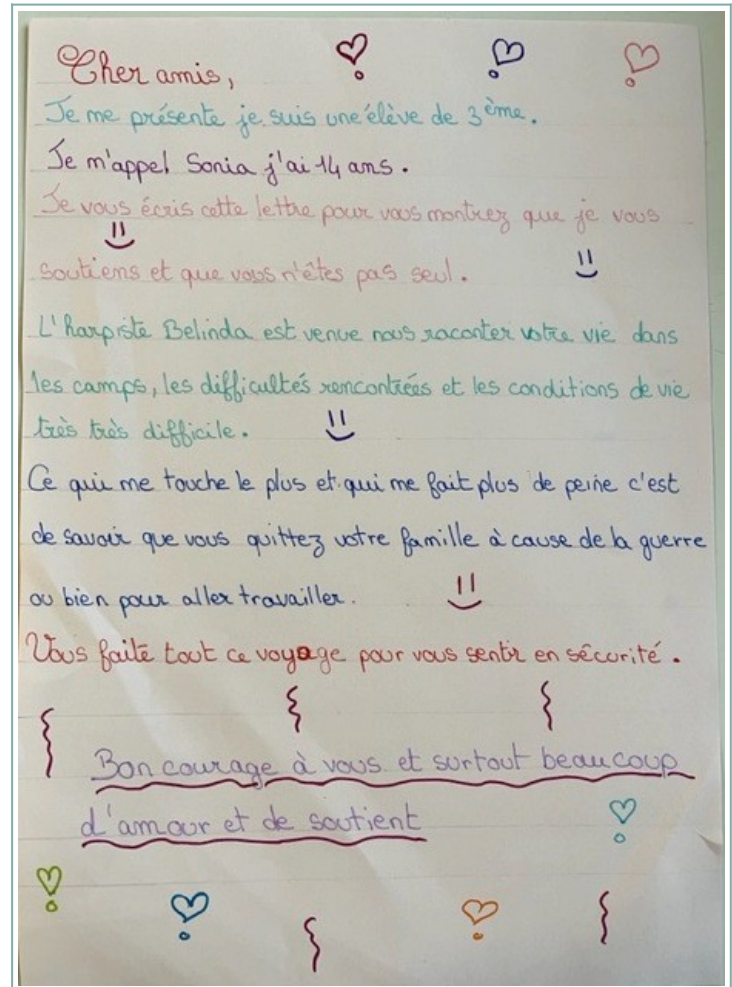 Cher amis,
Je me présente je suis une élève de 3ème.
Je m'appel Sonia j'ai 14 ans.
Je vous écris cette lettre pour vous montrez que je vous
soutiens et que vous n'êtes pas seul.
L'harpiste Belinda est venue nous raconter votre vie dans
les camps, les difficultés rencontrées et les conditions de vie
très très difficile.
Ce qui me touche le plus et qui me fait plus de peine c'est
de savoir que vous quittez votre famille à cause de la guerre
ou bien pour aller travailler.
Vous faite tout ce voyage pour vous sentir en sécurité.
Bon courage à vous et surtout beaucoup
d'amour et de soutient